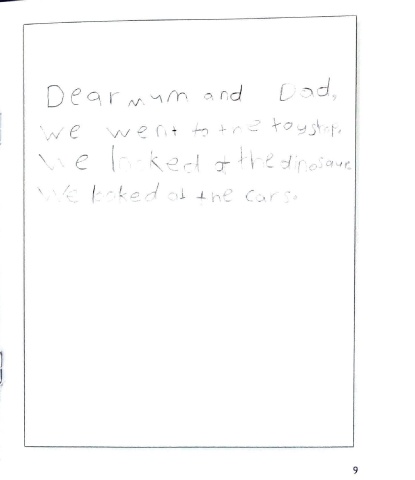 Dear mum and Dad,
we went to the toyshop.
We looked at the dinosaur
We looked at the cars.
9